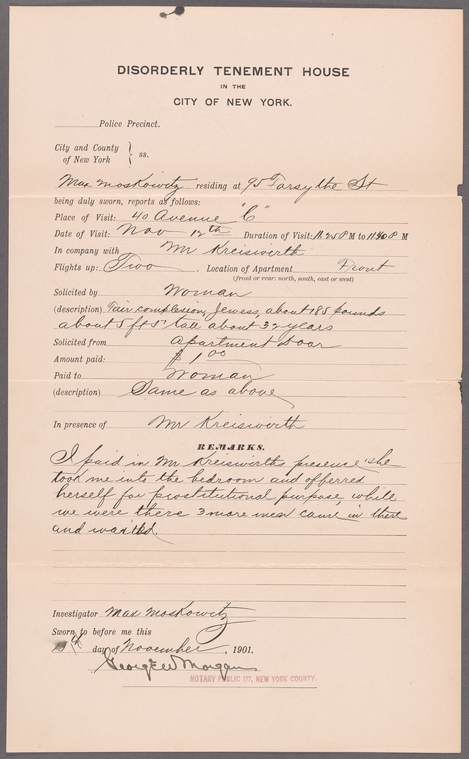 DISORDERLY TENEMENT HOUSE
IN THE
CITY OF NEW YORK.
Police Precinct.
City and County
of New York } ss.
Max Moskowitz residing at 95 Forsythe St
being duly sworn, reports as follows:
Place of Visit: 40 Avenue "C"
Date of Visit: Nov 12th Duration of Visit: 11.25 P M to 11.40 P. M
In company with Mr Kreiswirth
Flights up: Two Location of Apartment Front
(front or rear: north, south, east or west)
Solicited by Woman
(description) Fair complexion, Jewess, about 185 pounds
about 5 ft 5" tall about 32 years
Solicited from apartment Door
Amount paid: $1.00
Paid to Woman
(description) Same as above
In presence of Mr Kreiswirth
REMARKS.
I paid in Mr Kreiswirths presence she
took me into the bedroom and offered
herself for prostitutional purpose, while
we were there 3 more men came in there
and waited.
Investigator Max Moskowitz
Sworn to before me this
day of November, 1901.
George W Morgan
NOTARY PUBLIC NEW YORK COUNTY.